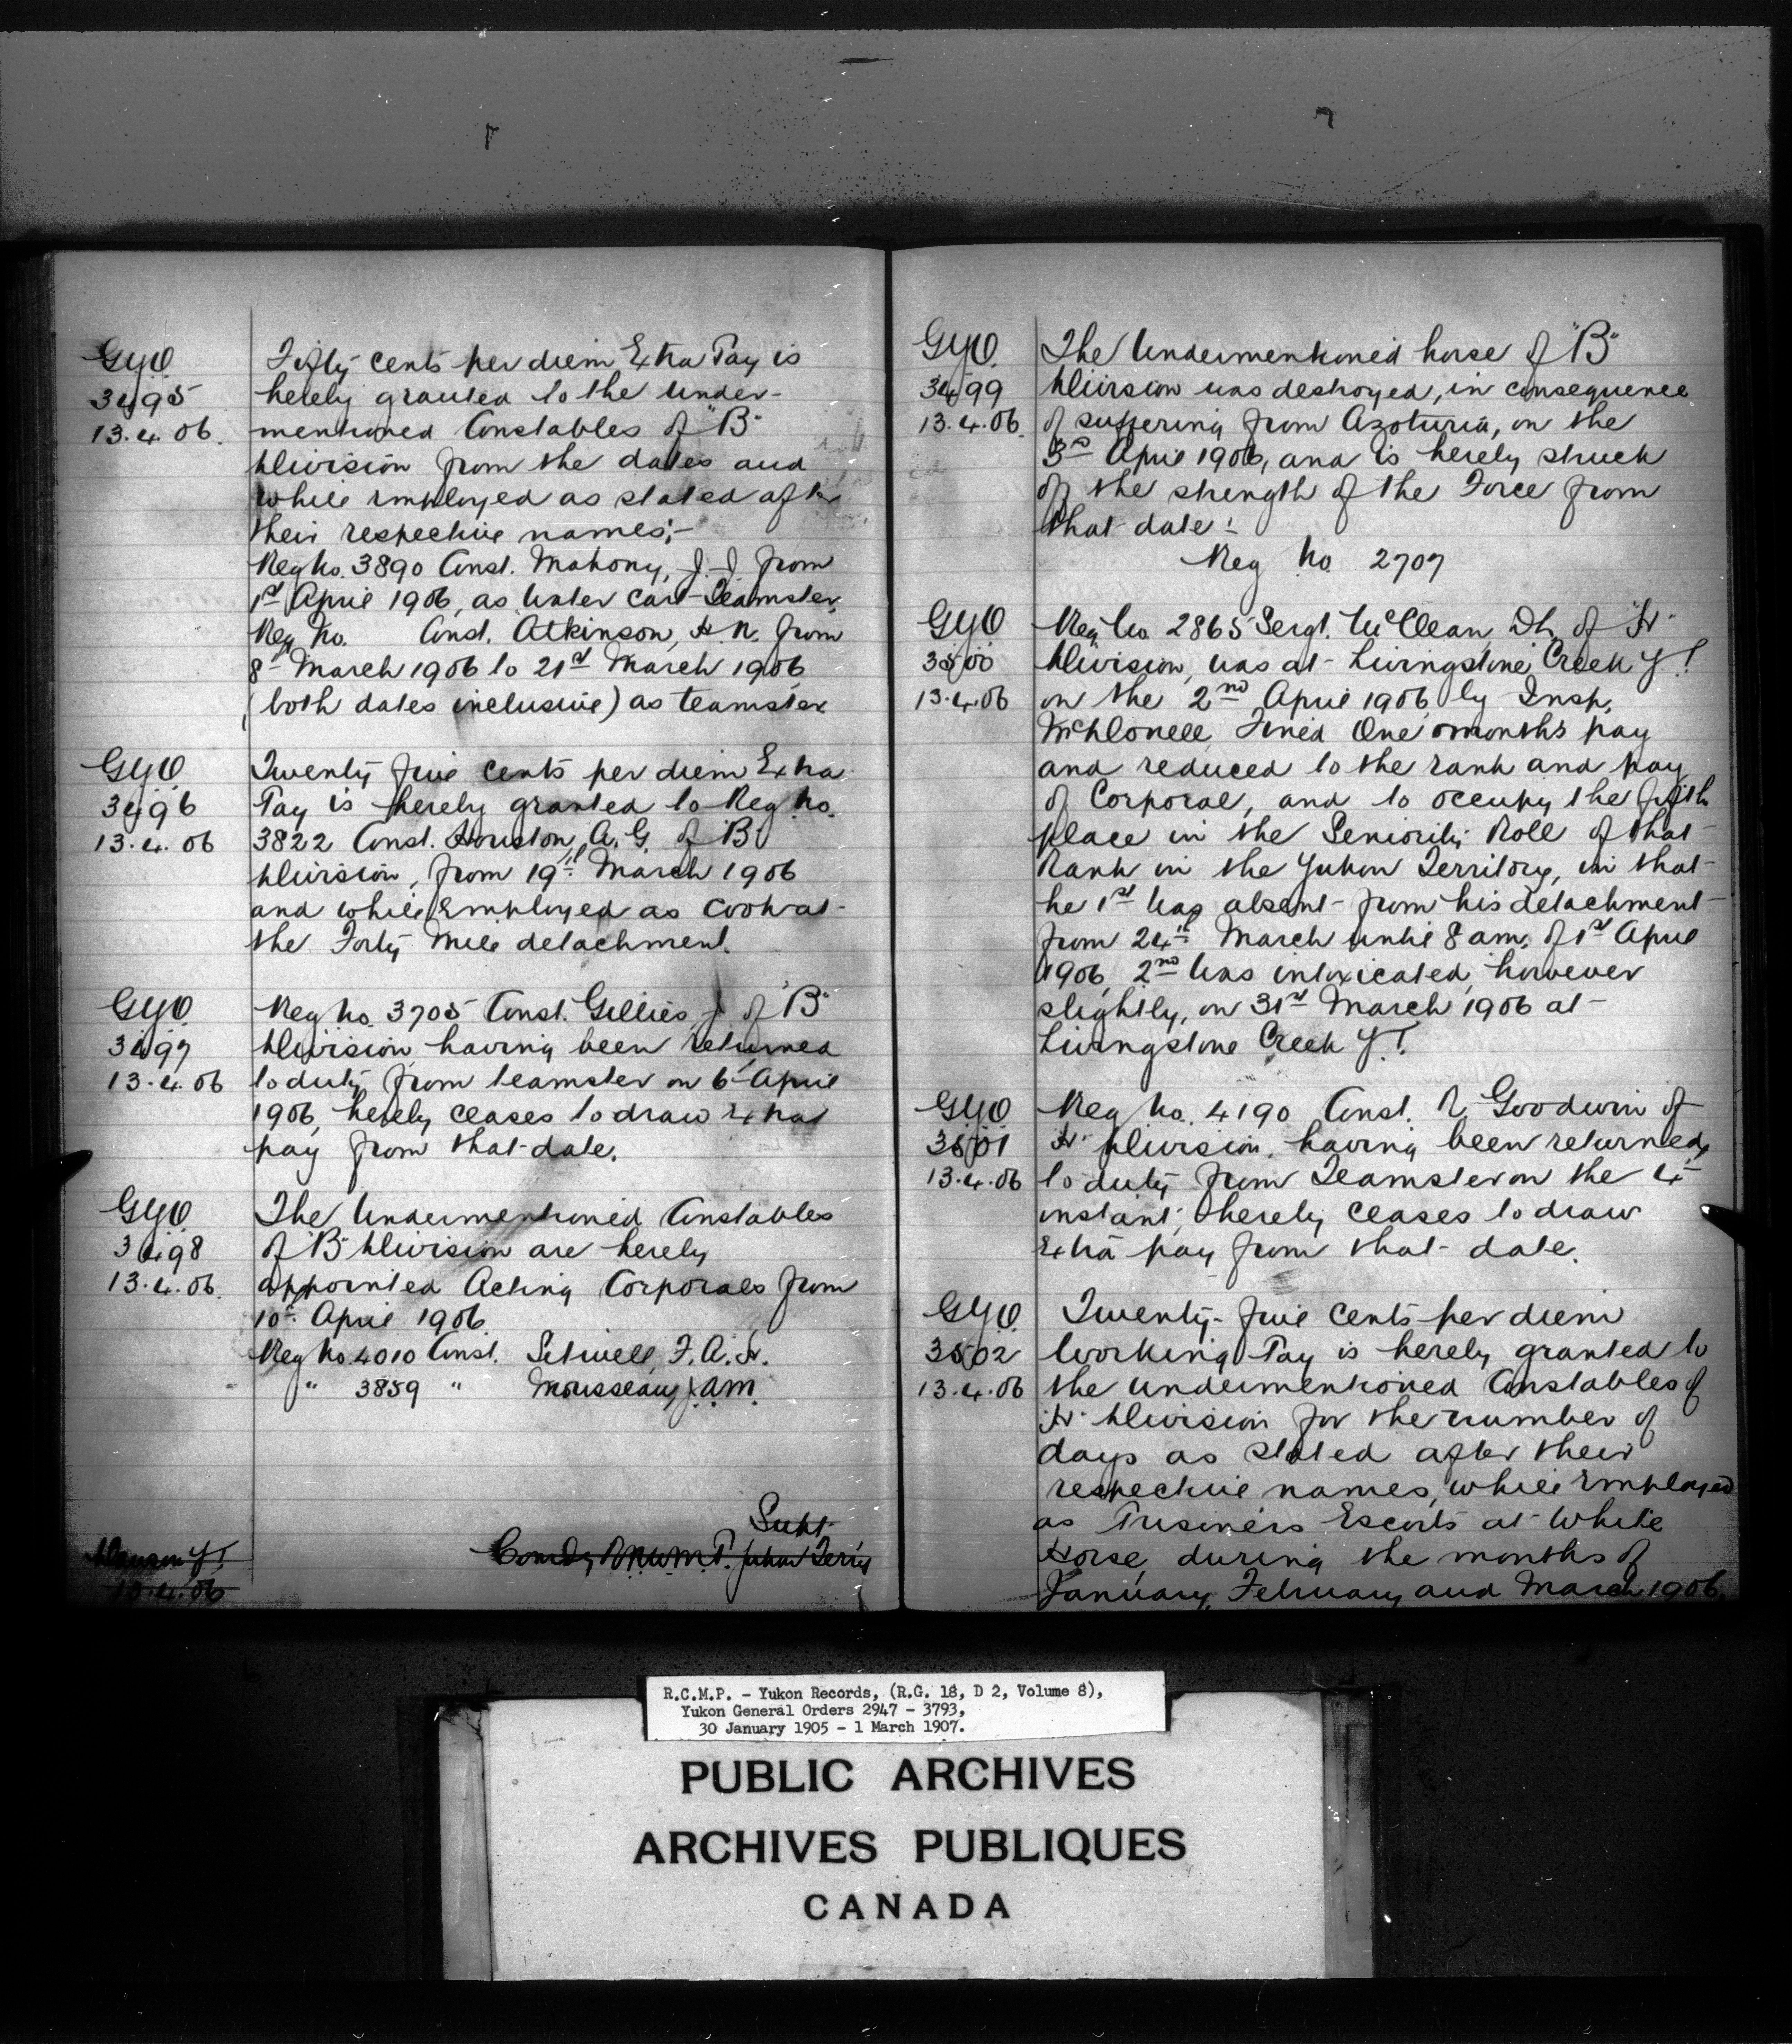 G.Y.O.
3495
13.4.06.
Fifty cents per diem Extra Pay is
hereby granted to the under-
mentioned Constables of "B"
Division from the dates and
while employed as stated after
their respective names;-
Reg No. 3890 Const. Mahony, J.J. from
1st April 1906, as Water Cart Teamster.
Reg No. Const. Atkinson, H.N. from
8th March 1906 to 21st March 1906
(both dates inclusive) as teamster
G.Y.O.
3496
13.4.06
Twenty five cents per diem Extra
Pay is hereby granted to Reg No.
3822 Const. Houston, A.G. of "B"
Division, from 19th March 1906
and while Employed as Cook at
the Forty Mile detachment.
G.Y.O.
3497
13.4.06
Reg No. 3705 Const. Gillies, J. of "B"
Division having been returned
to duty from teamster on 6th April
1906, hereby ceases to draw extra
pay from that date.
G.Y.O.
3498
13.4.06.
The Undermentioned Constables
of "B" Division are hereby
appointed Acting Corporals from
10th April 1906
Reg No. 4010 Const. F.A.H.
" 3859 " Mousseau, J.A.M.
Supt.
Comdg R.N.W.M.P. Yukon Terr'y
Dawson Y.T.
13.4.06
G.Y.O.
3499
13.4.06.
The Undermentioned horse of "B"
Division was destroyed, in consequence
of suffering from Azoturia, on the
3rd April 1906, and is hereby struck
off the strength of the Force from
that date:-
Reg No. 2707
G.Y.O.
3500
13.4.06
Reg No. 2865 Sergt. McClean, of "H"
Division, was at Livingstone Creek Y.T.
on the 2nd April 1906 by Insp.
McDonell, Fined One months pay
and reduced to the rank and pay
of Corporal, and to occupy the fifth
place in the Seniority Roll of that
Rank in the Yukon Territory, in that
he 1st Was absent from his detachment
from 24th March until 8 am. of 1st April
1906, 2nd Was intoxicated, however
slightly, on 31st March 1906 at
Livingstone Creek Y.T.
G.Y.O.
3501
13.4.06
Reg No. 4190 Const. Goodwin of
"H" Division, having been returned
to duty from Teamster on the 4th
instant, hereby ceases to draw
extra pay from that date.
G.Y.O.
3502
13.4.06
Twenty-five cents per diem
Working Pay is hereby granted to
the undermentioned Constables of
"H" Division for the number of
days as stated after their
respective names, while Employed
as Prisoners Escorts at White
Horse, during the months of
January, February and March 1906.
R.C.M.P. - Yukon Records, (R.G. 18, D 2, Volume 8),
Yukon General Orders 2947 - 3793,
30 January 1905 - 1 March 1907.
PUBLIC ARCHIVES
ARCHIVES PUBLIQUES
CANADA